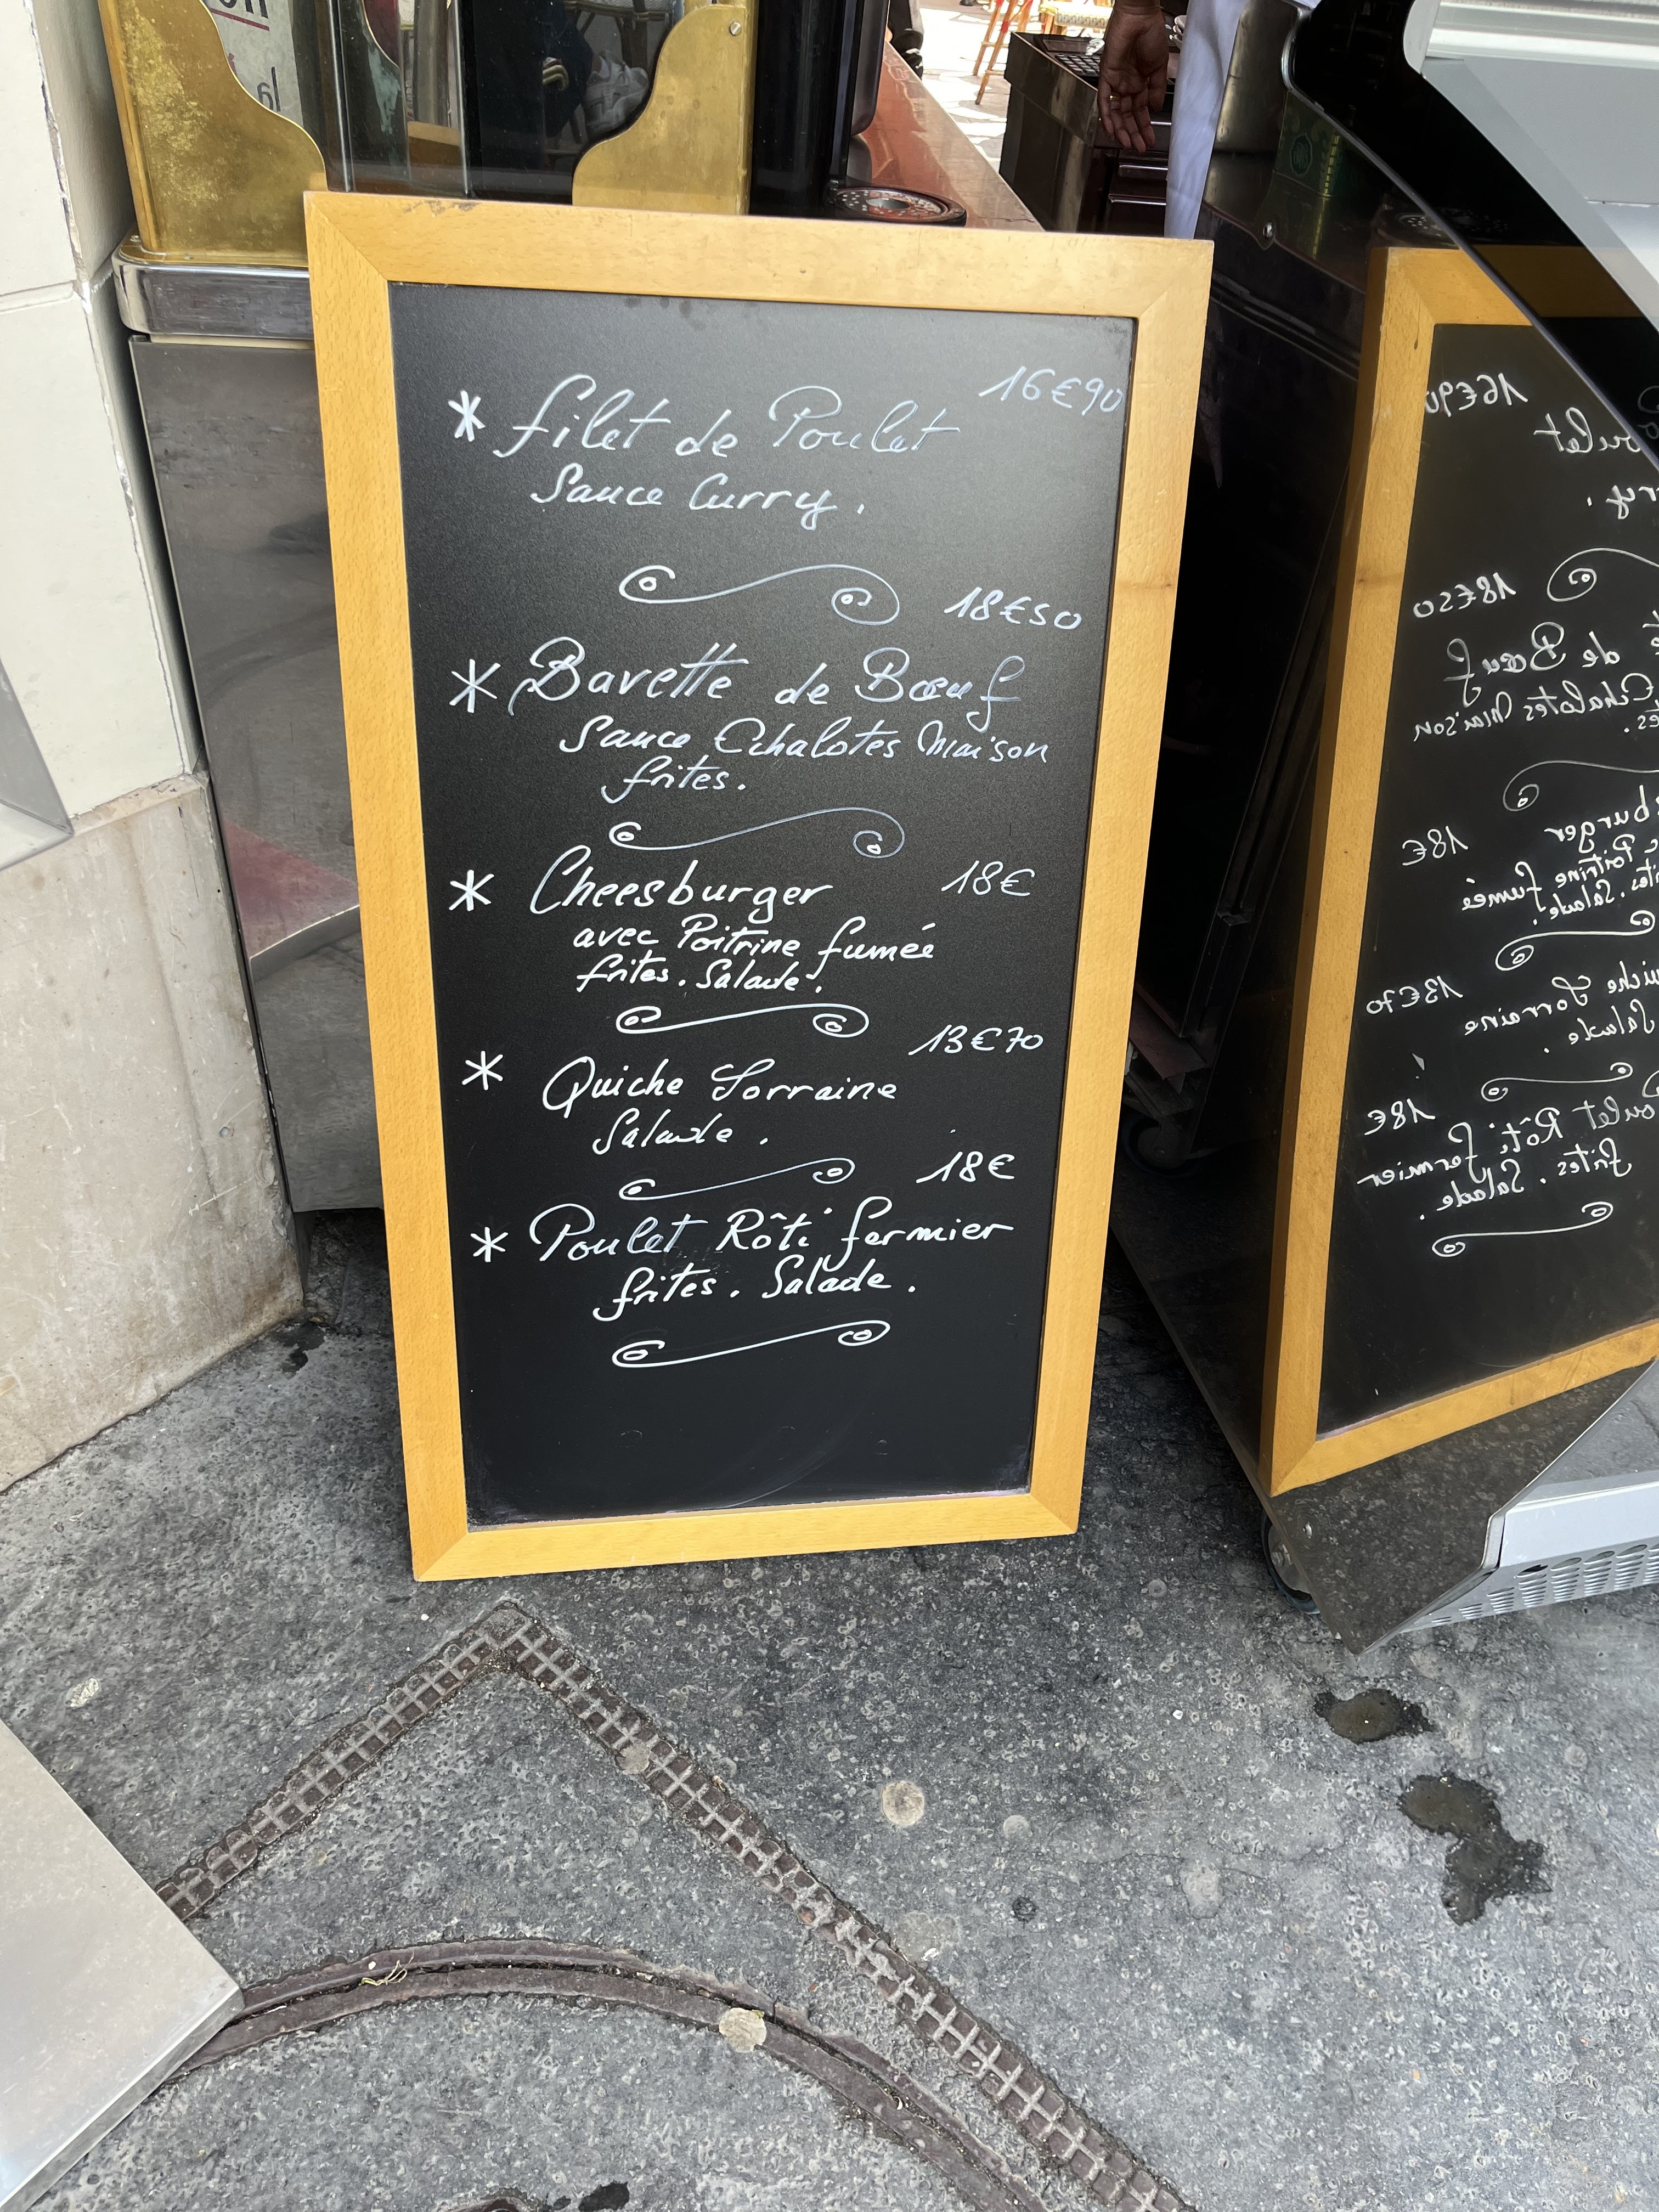 16€90
* filet de Poulet
Sauce Curry.
18€50
* Bavette de Bœuf
Sauce Echalotes Maison
frites.
* Cheesburger 18€
avec Poitrine fumée
frites. Salade.
13€70
* Quiche Lorraine
Salade.
18€
* Poulet Rôti fermier
frites. Salade.
la